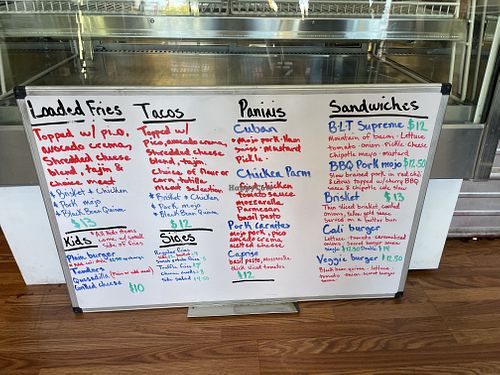 Loaded Fries
Topped w/ pico,
avocado crema,
Shredded cheese
blend, tajin &
choice meat
* Brisket * Chicken
* Pork mojo
* Black Bean Quinoa
$13
Kids
All kids items
come w/ small
side of fries
Plain burger
Tenders
Quesadilla
Grilled cheese
$10
Tacos
Topped w/
Pico, avocado crema,
Shredded cheese
blend, tajin.
Choice of flour or
corn tortilla
Meat Selection
* Brisket * Chicken
* Pork mojo
* Black Bean Quinoa
$12
Sides
Regular fries
Sweet potato fries
Truffle fries
Cheese curds
side salad
Paninis
Cuban
mojo pork. Ham
swiss. mustard
Pickle.
Chicken Parm
chicken
tomato sauce
mozzarella
Parmesan
basil pesto
Pork Carnitas
mojo pork, pico
avocado crema
melted cheese
Caprise
basil pesto, mozzarella
thick sliced tomatoes
$12
Sandwiches
B-L-T Supreme $12
Mountain of bacon - Lettuce
tomato - onion - Pickle Cheese
Chipotle mayo -
BBQ Pork mojo $12.50
Slow braised pork in red chili
& citrus topped w/ chunky BBQ
sauce & chipotle cole slaw
Brisket $13
Thin sliced brisket, carmel
onions, slow cold sauce
served on a button bun
Cali burger
Lettuce - tomato - caramelized
onions - secret burger sauce
single $12.50 Double $14
Veggie burger $12.50
Black bean quinoa - lettuce
tomato - onion - secret burger
sauce